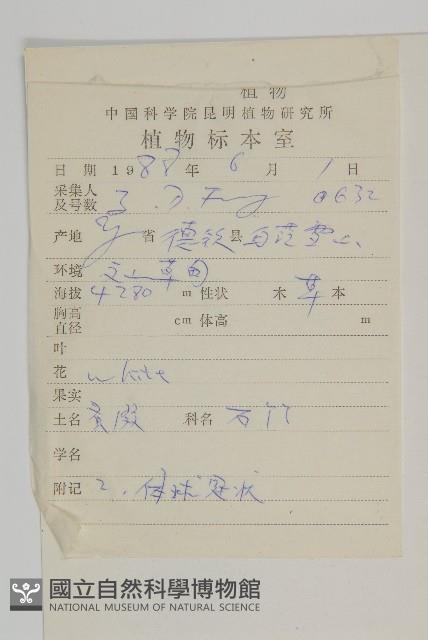 植物
中国科学院昆明植物研究所
植物标本室
日期 1988年 6月 1日
采集人
及号数 0632
产地 省 德钦县 白茫雪山
环境 草甸
海拔 4280 m 性状 木 草 本
胸高
直径 cm 体高 m
叶
花 white
果实
土名 科名 石竹
学名
附记 2.
國立自然科學博物館
NATIONAL MUSEUM OF NATURAL SCIENCE